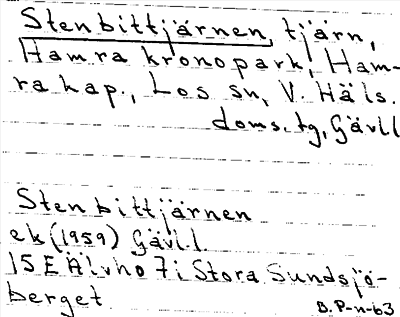 Stenbittjärnen, tjärn,
Hamra kronopark, Ham-
ra kap., Los sn, V. Häls.
doms. tg, Gävll
Stenbittjärnen
ek (1959) Gävl.l.
15E Älvho 7i Stora Sundsjö-
berget
B. P-n-63